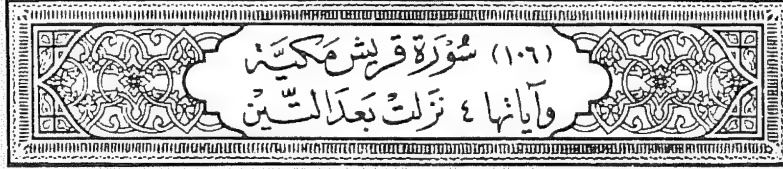 (١٠٦) سُوْرَةُ قُرَيْشٍ مَكِيَّةٌ
وَآيَاتُهَا ٤ نَزَلَتْ بَعْدَ التِّيْنِ